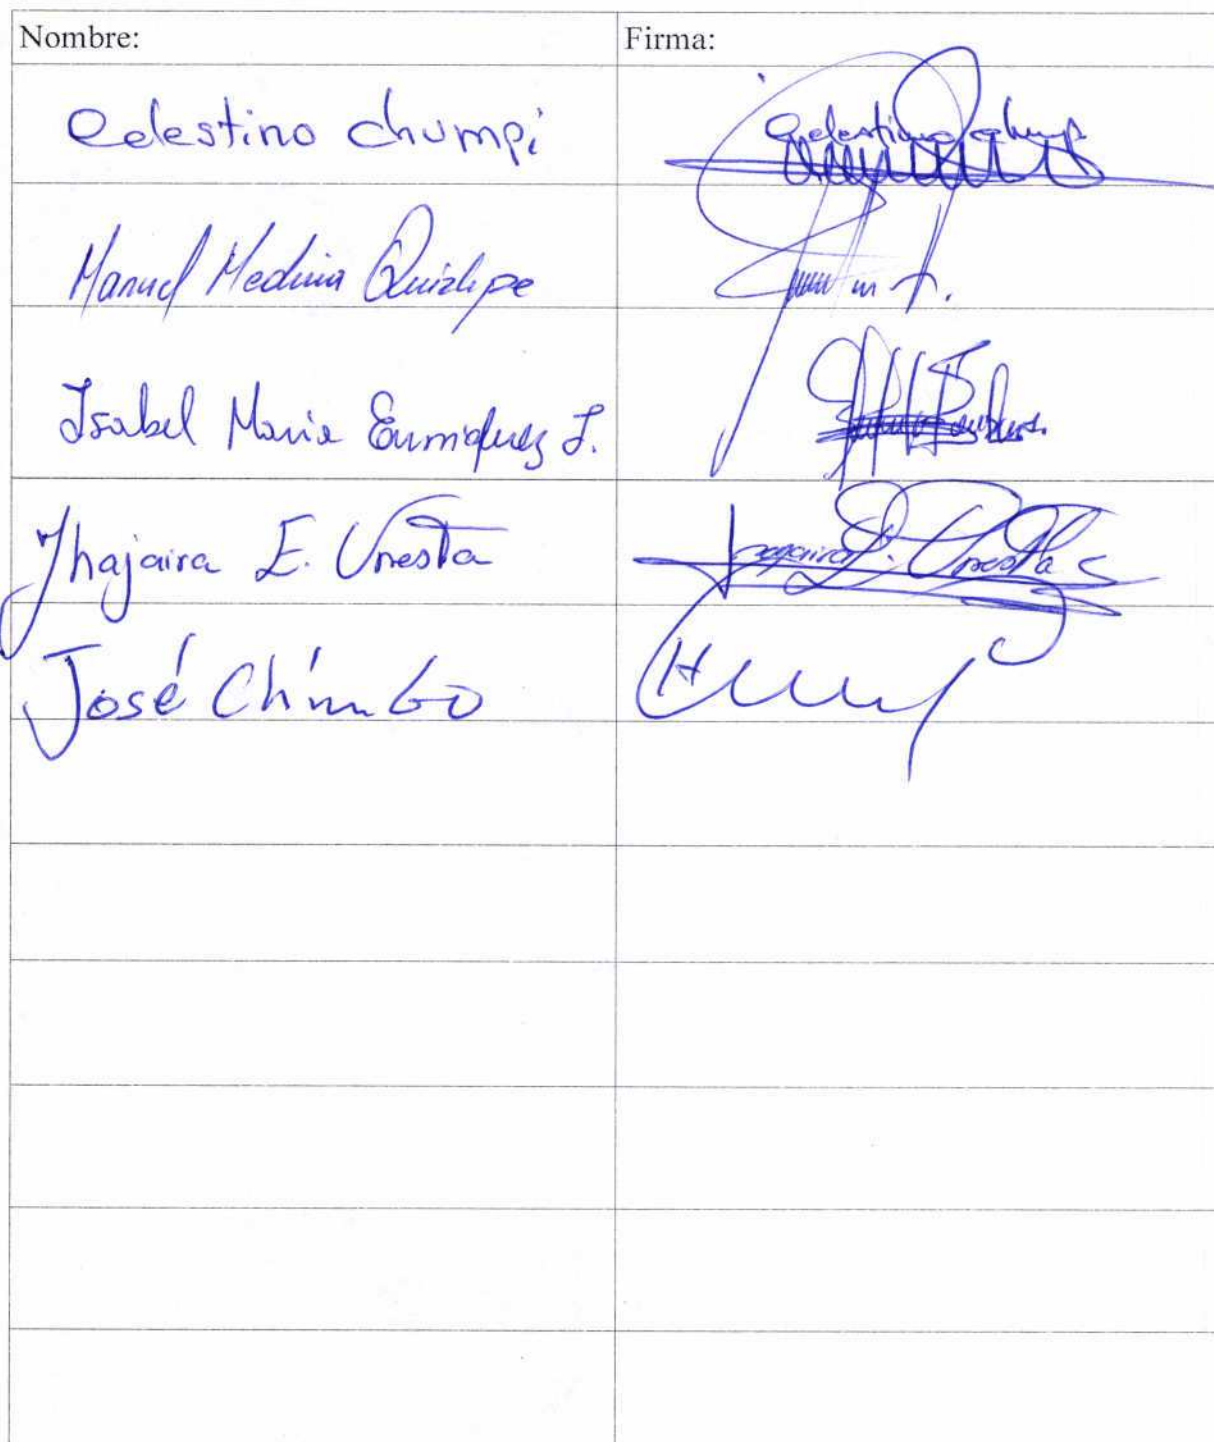 Nombre: Firma:
Celestino chumpi Celestino chumpi
Manuel Medina Quizhpe
Isabel Maria Enmiquez J.
Jhajaira E. Unesta
José Chimbo